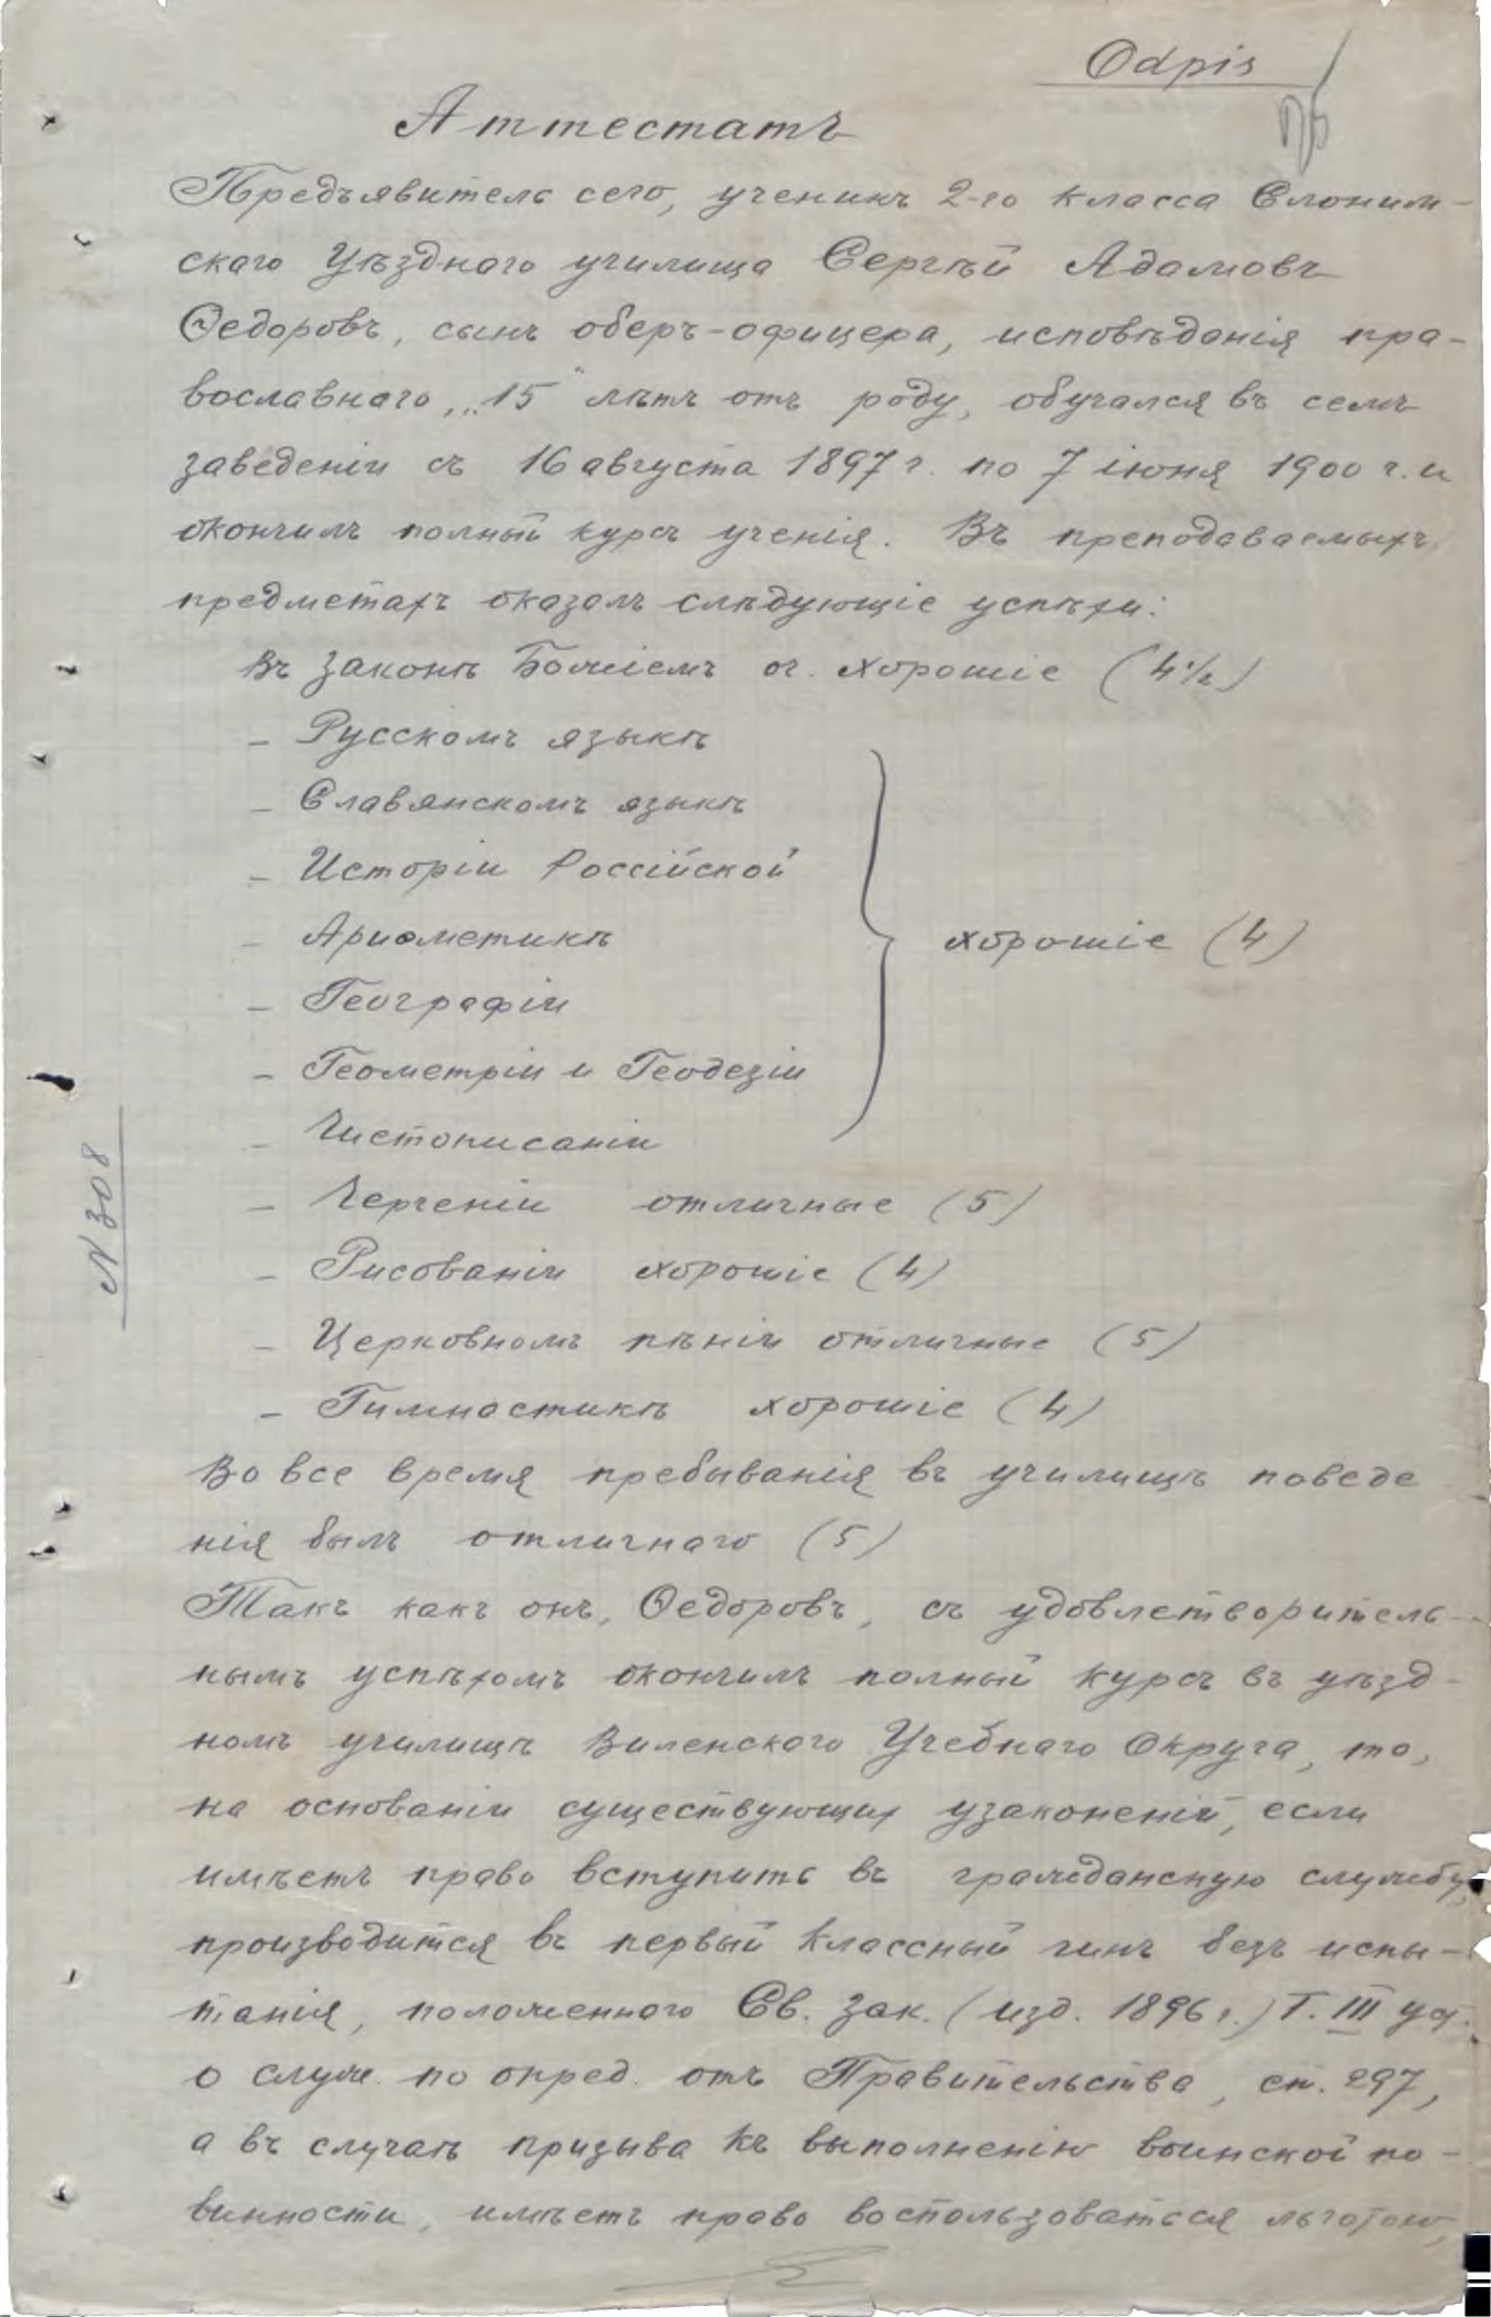 Odpis
Аттестатъ
Предъявитель сего, ученикъ 2-го класса Слоним-
скаго Уѣзднаго училища Сергѣй Адамовъ
Ѳедоровъ, сынъ оберъ-офицера, исповѣданія пра-
вославнаго, „15" лѣтъ отъ роду, обучался въ семъ
заведеніи съ 16 августа 1897 г. по 7 іюня 1900 г. и
окончилъ полный курсъ ученія. Въ преподаваемыхъ
предметахъ оказалъ слѣдующіе успѣхи:
Въ законѣ Божіемъ оч. хорошіе (4½)
– Русскомъ языкѣ
– Славянскомъ языкѣ
– Исторіи Россійской
– Ариѳметикѣ хорошіе (4)
– Географіи
– Геометріи и Геодезіи
– Чистописаніи
– Черченіи отличные (5)
– Рисованіи хорошіе (4)
– Церковномъ пѣніи отличные (5)
– Гимнастикѣ хорошіе (4)
Во все время пребыванія въ училищѣ поведе
нія былъ отличнаго (5)
Такъ какъ онъ, Ѳедоровъ, съ удовлетворитель-
нымъ успѣхомъ окончилъ полный курсъ въ уѣзд-
номъ училищѣ Виленскаго Учебнаго Округа, то,
на основаніи существующих узаконеній, если
имѣетъ право вступить въ гражданскую службу,
производится въ первый классный чинъ безъ испы-
танія, положеннаго Св. Зак. (изд. 1896 г.) Т. III уст.
о служ. по опред. отъ Правительства, ст. 297,
а въ случаѣ призыва къ выполненію воинской по-
винности, имѣетъ право воспользоваться льготою,
N 308